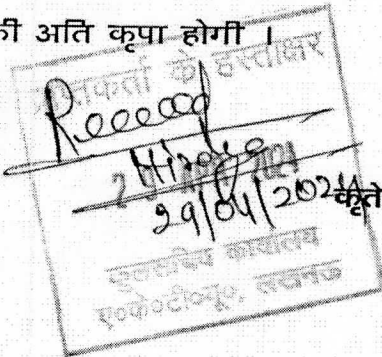 की अति कृपा होगी ।
प्राप्तकर्ता के हस्ताक्षर
Received
29/04/2024
कृते
कुलसचिव कार्यालय
ए०के०टी०यू०, लखनऊ